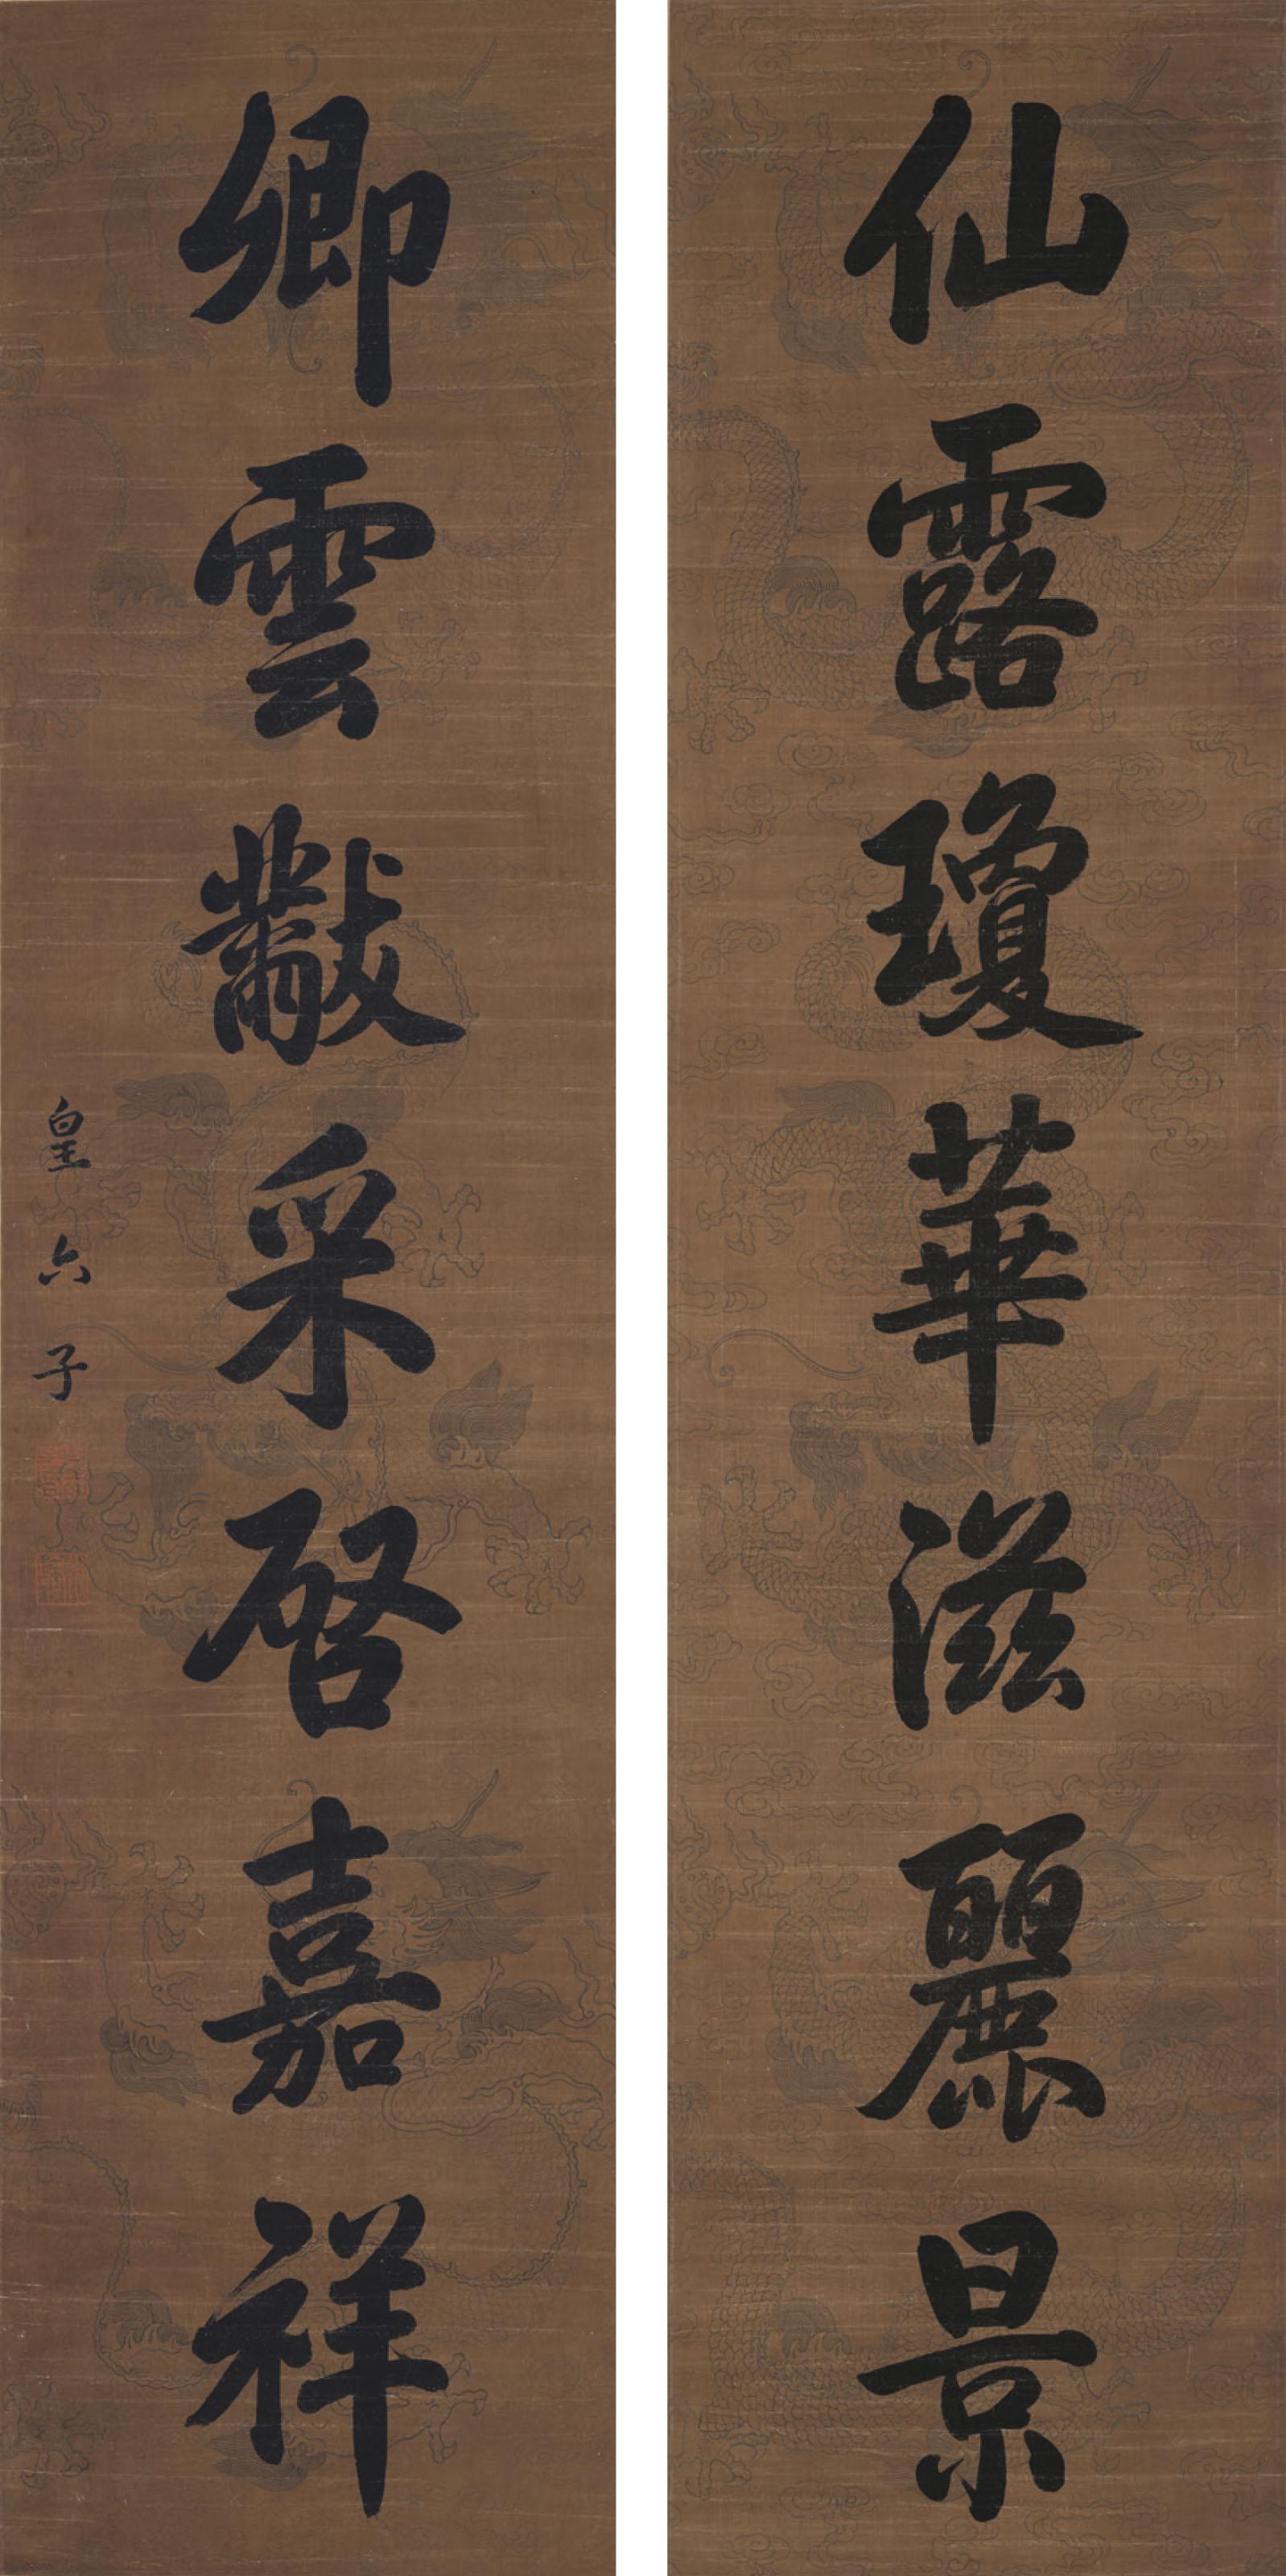 仙露瓊華滋麗景
卿雲黼采啓嘉祥
皇六子